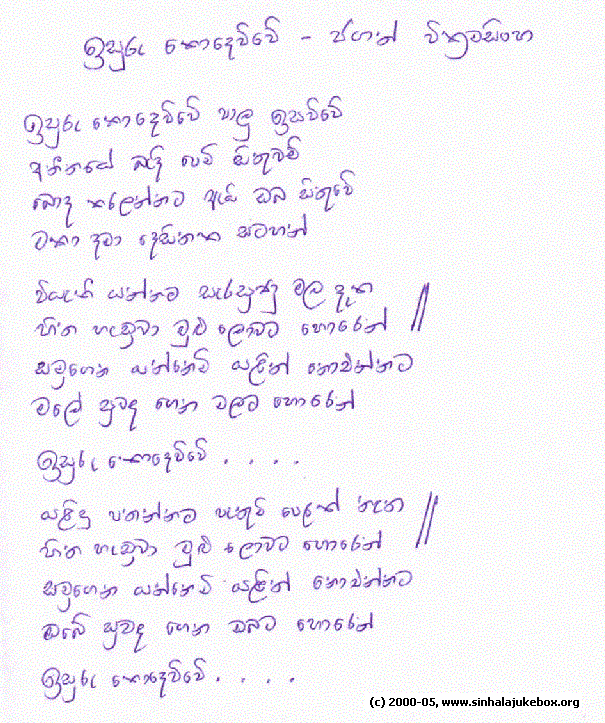 ඉසුරු නොදෙව්වේ - ජගත් වික්‍රමසිංහ
ඉසුරු නොදෙව්වේ පාලු ඉසව්වේ
අතීතයේ බැඳි පෙම් සිතුවම්
බොඳ කරලන්නට ඇයි ඔබ සිතුවේ
මකා දමා දෙසිතක සටහන්
වියැකී යන්නට සැරසුනු මල දැක
හිත හැඬුවා මුළු ලොවට හොරෙන් //
සමුගෙන යන්නෙමි යළිත් නොඑන්නට
මලේ සුවඳ ගෙන මලට හොරෙන්
ඉසුරු නොදෙව්වේ . . . .
යළිදු පතන්නට පැතුම් පෙළක් නැත
හිත හැඬුවා මුළු ලොවට හොරෙන් //
සමුගෙන යන්නෙමි යළිත් නොඑන්නට
ඔබේ සුවඳ ගෙන ඔබට හොරෙන්
ඉසුරු නොදෙව්වේ . . . .
(c) 2000-05, www.sinhalajukebox.org